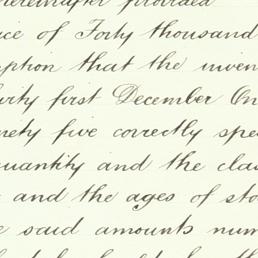 hereinafter provided
ice of Forty thousand
ption that the inven
irty first December On
nety five correctly spe
quantity and the clas
and the ages of sto
e said amounts num